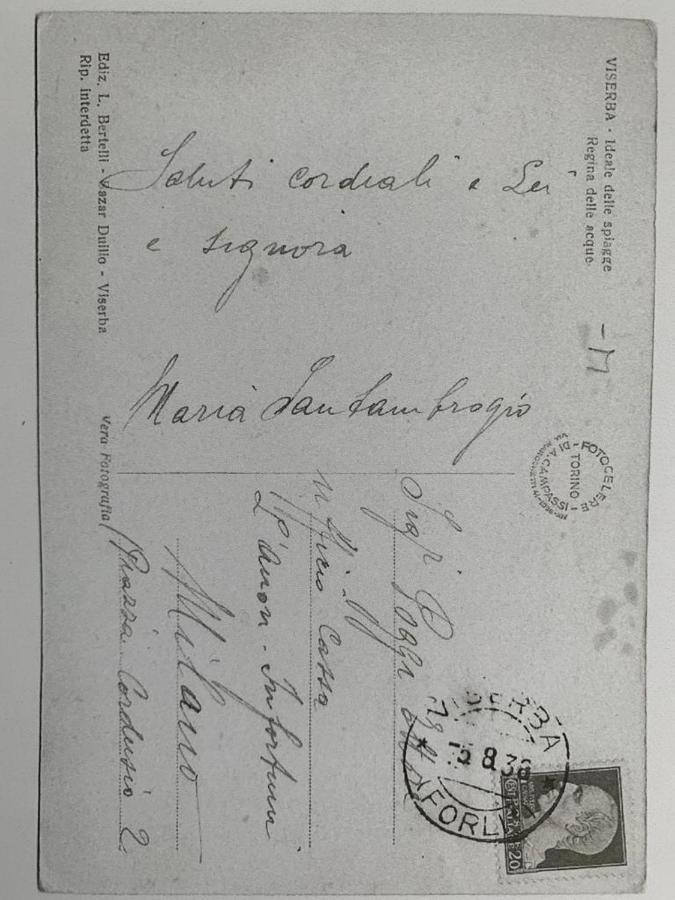 VISERBA - Ideale delle spiagge
Regina delle acque.
Saluti cordiali a Lei
e signora
Maria Santambrogio
FOTOCELERE
DI A. CAMPASSI
TORINO
VISERBA
5.8.36
FORLI
POSTE ITALIANE
20
Sig.
Poggi
ufficio Cassa
L'Anon. Infortuni
Milano
(Piazza Cordusio 2.
Ediz. L. Bertelli - Vazar Duilio - Viserba
Rip. interdetta
Vera Fotografia